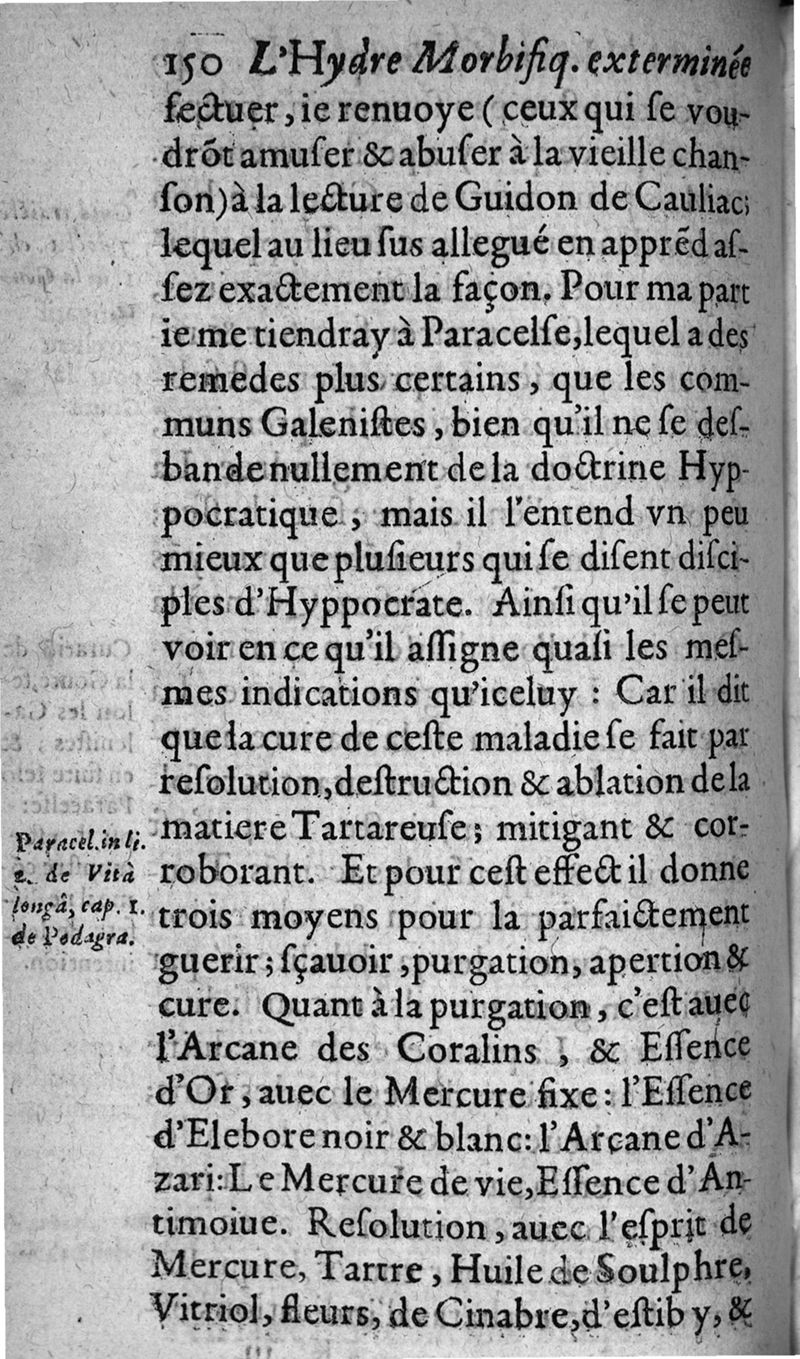 150 L'Hydre Morbifiq. exterminée
fectuer, ie renuoye (ceux qui ſe vou-
drõt amuſer & abuſer à la vieille chan-
ſon) à la lecture de Guidon de Cauliac;
lequel au lieu ſus allegué en apprẽd aſ-
ſez exactement la façon. Pour ma part
ie me tiendray à Paracelſe, lequel a des
remedes plus certains, que les com-
muns Galeniſtes, bien qu'il ne ſe deſ-
bande nullement de la doctrine Hyp-
pocratique, mais il l'entend vn peu
mieux que pluſieurs qui ſe diſent diſci-
ples d'Hyppocrate. Ainſi qu'il ſe peut
voir en ce qu'il aſſigne quaſi les meſ-
mes indications qu'iceluy : Car il dit
que la cure de ceſte maladie ſe fait par
reſolution, deſtruction & ablation de la
matiere Tartareuſe; mitigant & cor-
roborant. Et pour ceſt effect il donne
trois moyens pour la parfaictement
guerir; ſçauoir, purgation, apertion &
cure. Quant à la purgation, c'eſt auec
l'Arcane des Coralins, & Eſſence
d'Or, auec le Mercure fixe: l'Eſſence
d'Elebore noir & blanc: l'Arcane d'A-
zari: Le Mercure de vie, Eſſence d'An-
timoiue. Reſolution, auec l'eſprit de
Mercure, Tartre, Huile de Soulphre,
Vitriol, fleurs, de Cinabre, d'eſtiby, &
Paracel. in li.
2. de Vitâ
longâ, cap. 1.
de Podagra.